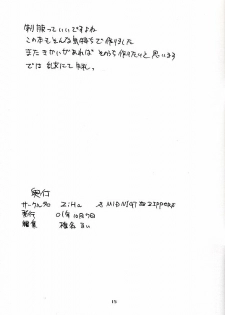 制服っていいですよね
この本もそんな気持ちで作りました
またきかいがあれば そのうち作りたいと思います
では 乱文にて失礼。
奥付
サークル名 ZiHa & MIDNIGHT ZIPPERS
発行 01年10月7日
編集 椎名 るい
19